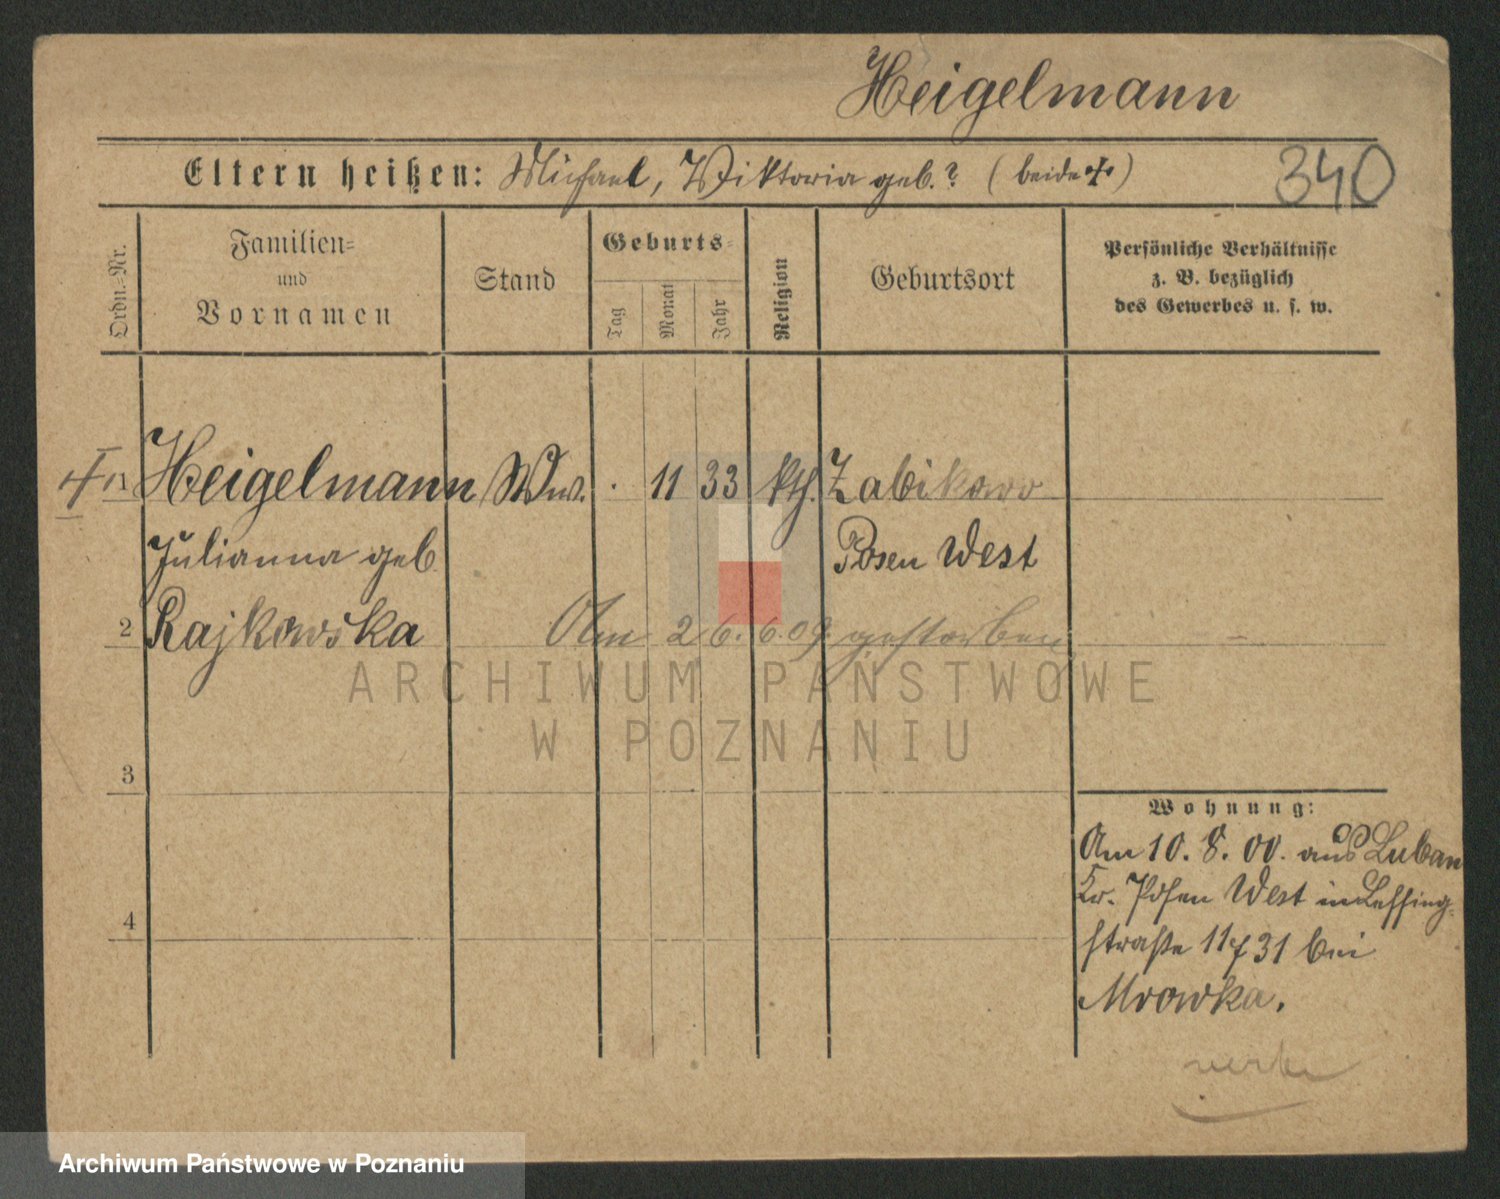 Heigelmann
Eltern heißen: Michael, Wiktoria geb. ? (beide +)
340
Ordn.-Nr.
Familien-
und
Vornamen
Stand
Geburts-
Tag
Monat
Jahr
Religion
Geburtsort
Persönliche Verhältnisse
z. B. bezüglich
des Gewerbes u. s. w.
1 Heigelmann Ww. . 11 33 kth. Zabikowo
Julianna geb. Posen West
2 Rajkowska Am 26.6.09. gestorben
ARCHIWUM PAŃSTWOWE
W POZNANIU
3
Wohnung:
Am 10. 8. 00. aus Luban
Kr. Posen West in Lessing-
4
straße 11 / 31 bei
Mrowka.
Archiwum Państwowe w Poznaniu